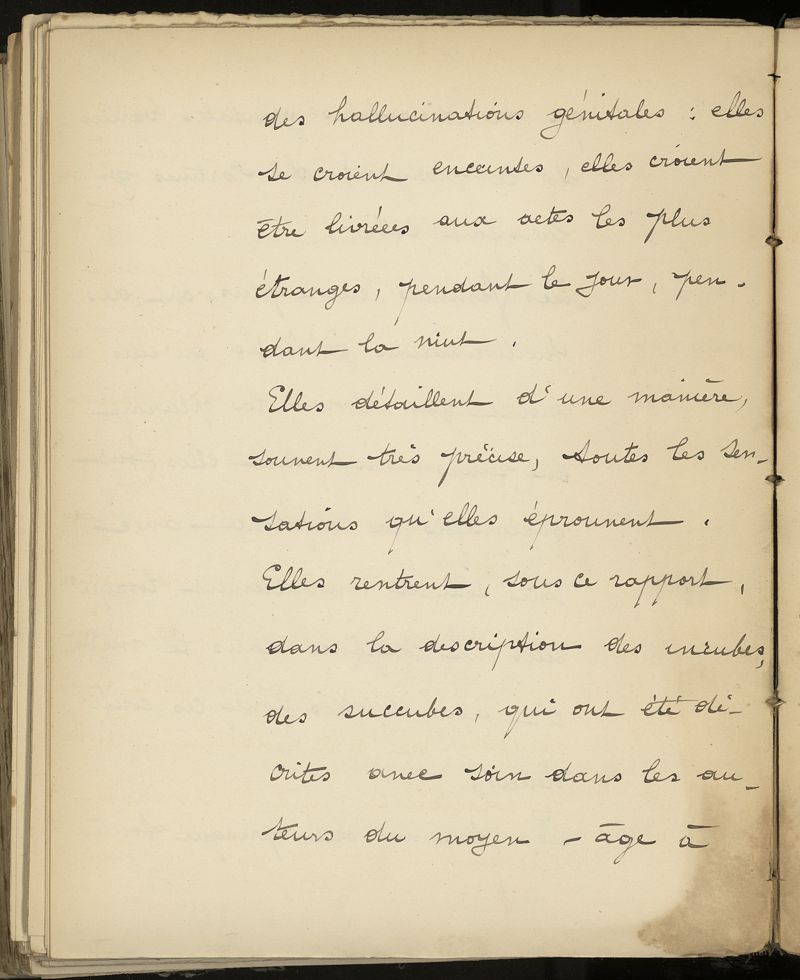 des hallucinations génitales : elles
se croient enceintes, elles croient
être livrées aux actes les plus
étranges, pendant le jour, pen-
dant la niut.
Elles détaillent d'une manière,
souvent très précise, toutes les sen-
sations qu'elles éprouvent.
Elles rentrent, sous ce rapport,
dans la description des incubes,
des succubes, qui ont été dé-
crites avec soin dans les au-
teurs du moyen-âge à